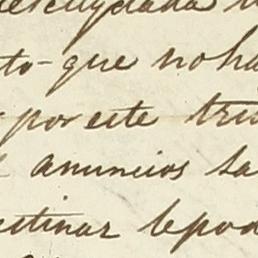 to- que no ha
por este tri
anuncios sa
estinar le pod